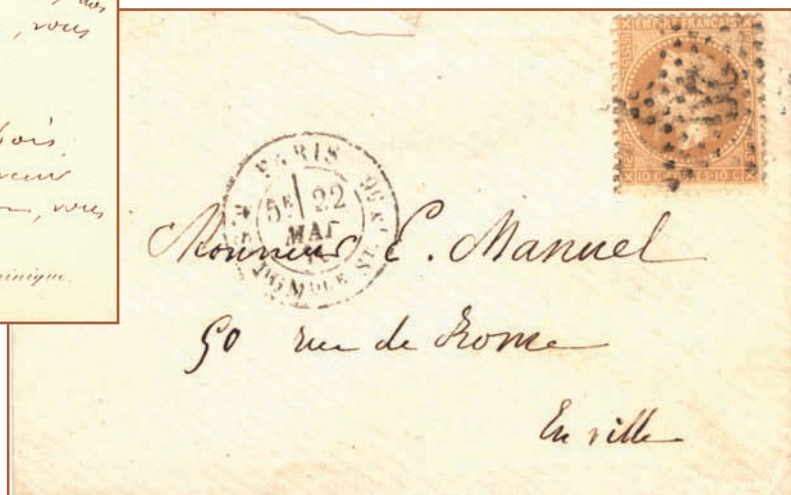 , vous
bois
, vous
EMPIRE FRANÇAIS
10 C POSTES 10 C
PARIS
5E 22
MAI
R. ST. DOMQUE ST. GN
Monsieur E. Manuel
50 rue de Rome
En ville